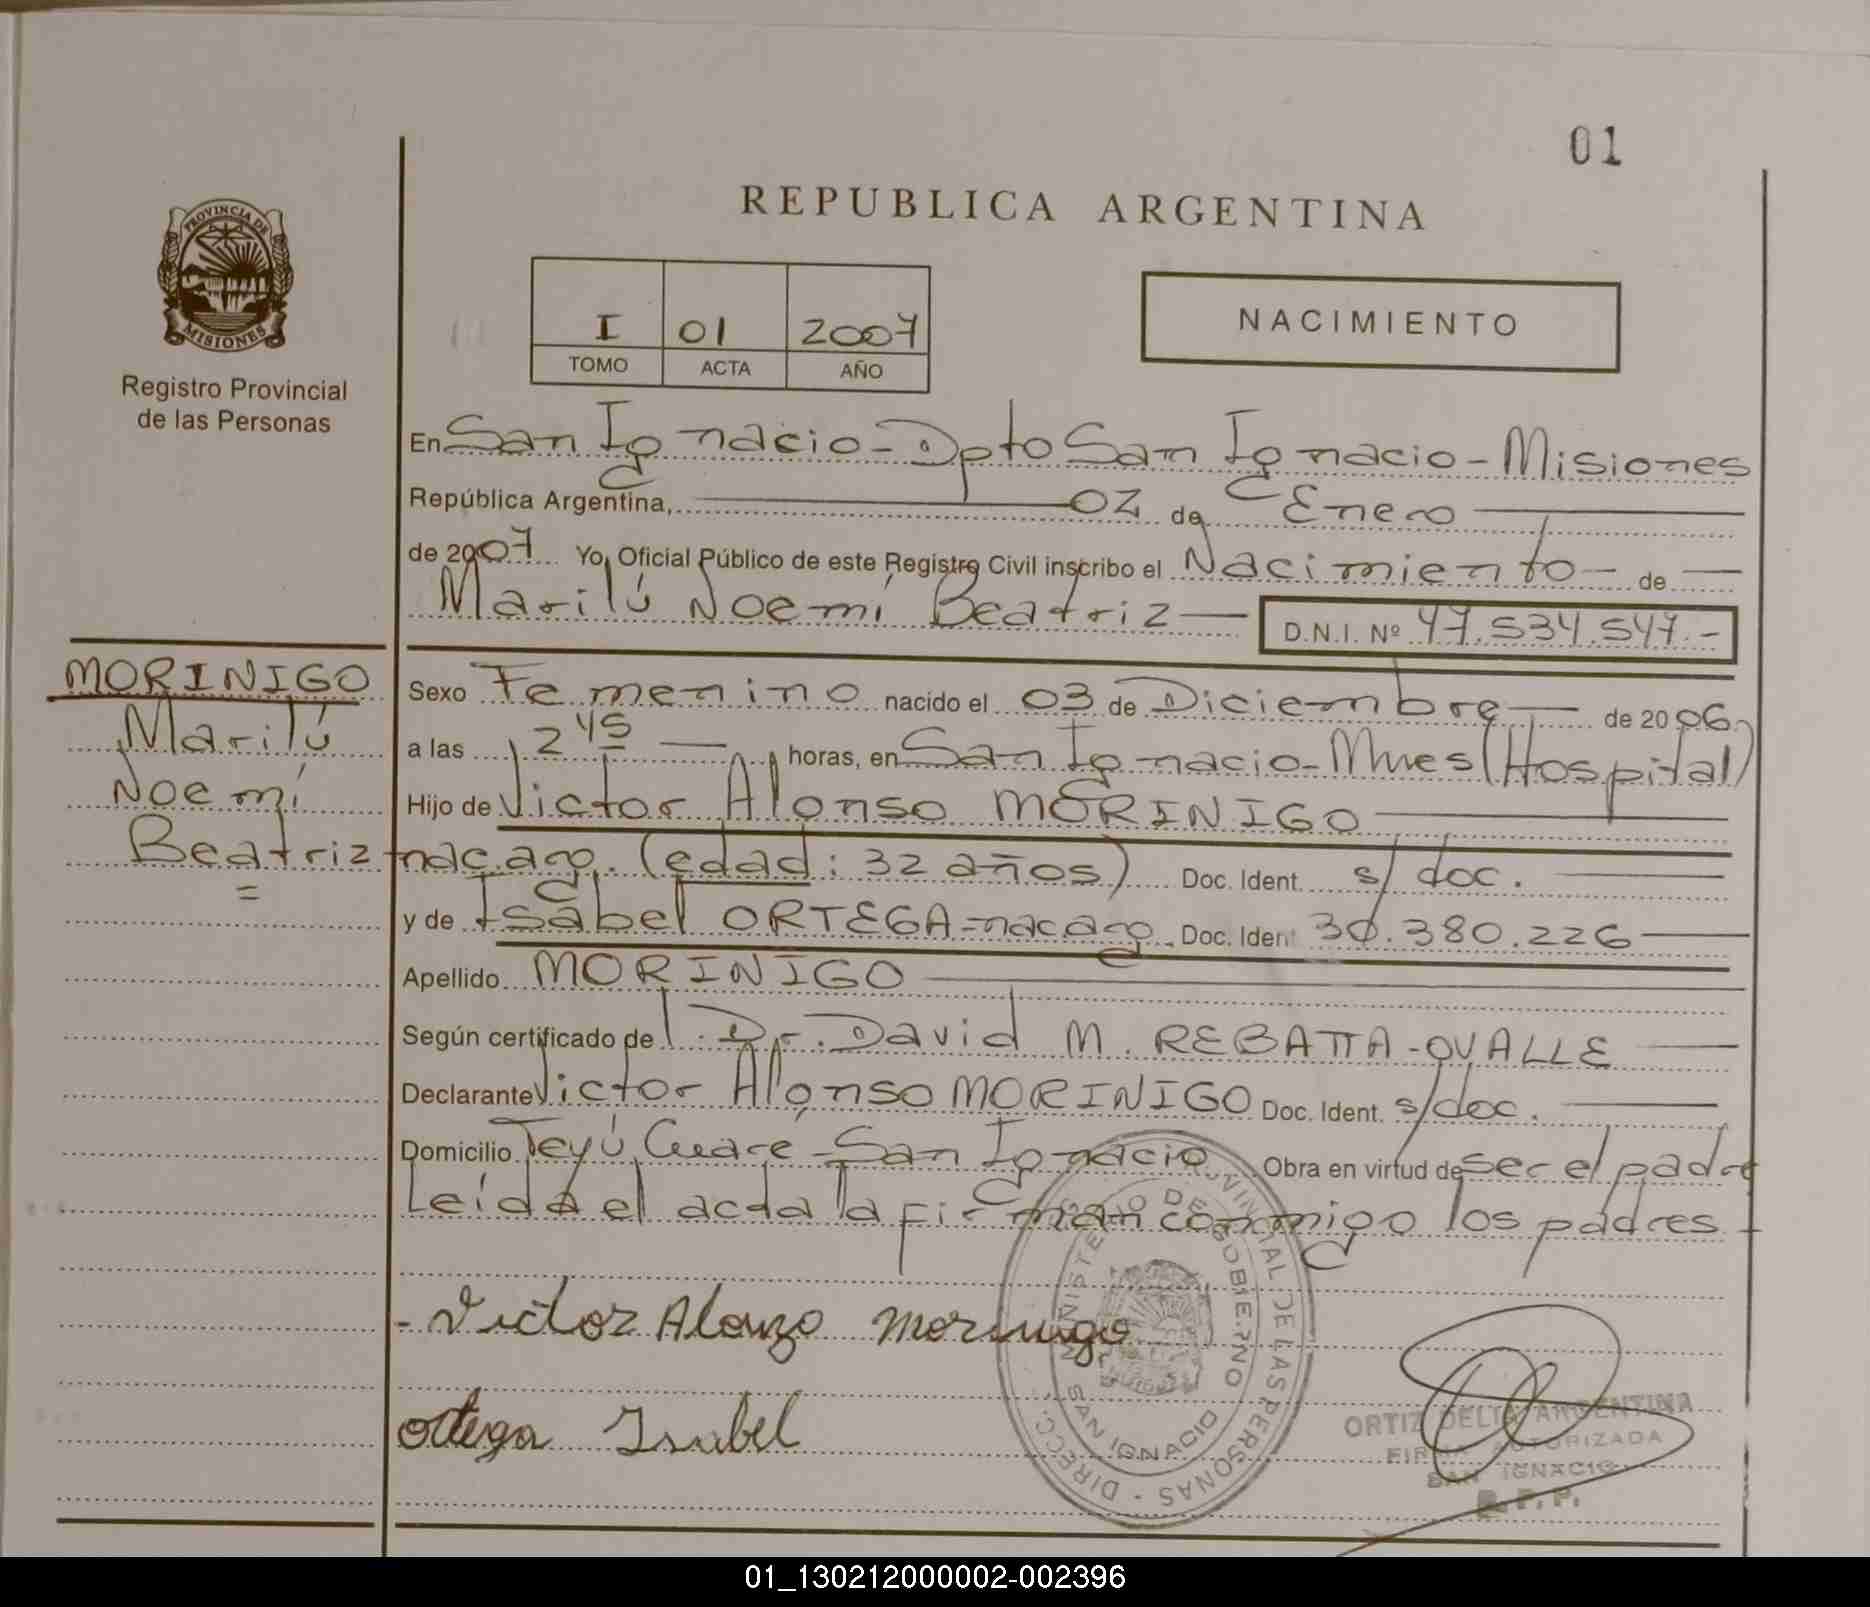 01
REPUBLICA ARGENTINA
PROVINCIA DE
MISIONES
Registro Provincial
de las Personas
I 01 2007
TOMO ACTA AÑO
NACIMIENTO
En San Ignacio - Dpto San Ignacio - Misiones
República Argentina, 02 de Enero
de 2007 Yo, Oficial Público de este Registro Civil inscribo el Nacimiento - de
Marilú Noemí Beatriz D.N.I. Nº 47.534.547.-
MORINIGO
Marilú
Noemí
Beatriz
=
Sexo Femenino nacido el 03 de Diciembre de 2006
a las 2 45 horas, en San Ignacio - Mnes (Hospital)
Hijo de Victor Alonso MORINIGO
nac. arg. (edad: 32 años) Doc. Ident. s/doc.
y de Isabel ORTEGA - nac. arg. Doc. Ident 30.380.226
Apellido MORINIGO
Según certificado de Dr. David M. REBATTA - OVALLE
Declarante Victor Alonso MORINIGO Doc. Ident. s/doc.
Domicilio Teyú Cuaré - San Ignacio Obra en virtud de ser el padre
Leída el acta la firman conmigo los padres -
- Victor Alonzo Morinigo
Ortega Isabel
MINISTERIO DE GOBIERNO
SAN IGNACIO
DIRECC. PROVINCIAL DE LAS PERSONAS
ORTIZ DELIA ARGENTINA
FIRMA AUTORIZADA
SAN IGNACIO
R. P. P.
01_130212000002-002396